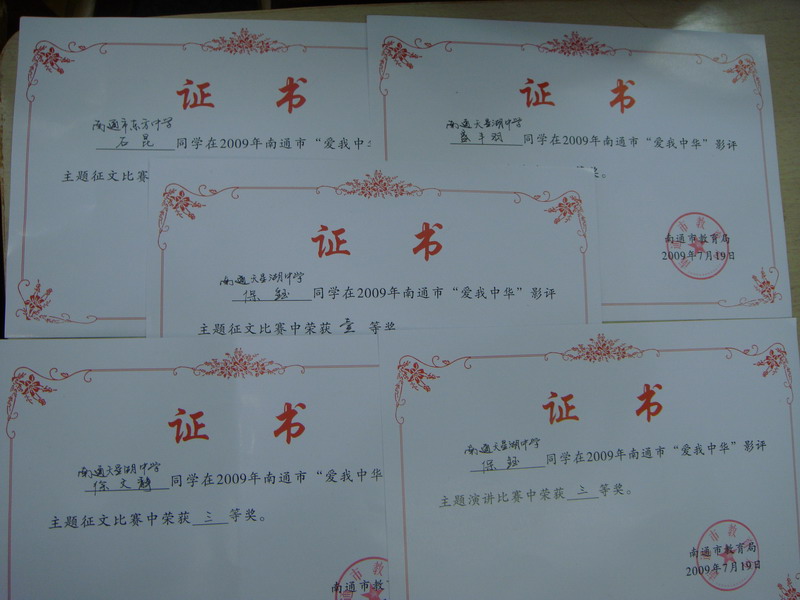 证 书
南通市东方中学
石昆 同学在2009年南通市“爱我中华
主题征文比赛
证 书
南通天星湖中学
同学在2009年南通市“爱我中华”影评
奖。
南通市教育局
2009年7月19日
证 书
南通天星湖中学
保 同学在2009年南通市“爱我中华”影评
主题征文比赛中荣获 壹 等奖
证 书
南通天星湖中学
徐文静 同学在2009年南通市“爱我中华
主题征文比赛中荣获 三 等奖。
南通市教
证 书
南通天星湖中学
保 同学在2009年南通市“爱我中华”影评
主题演讲比赛中荣获 三 等奖。
南通市教育局
2009年7月19日